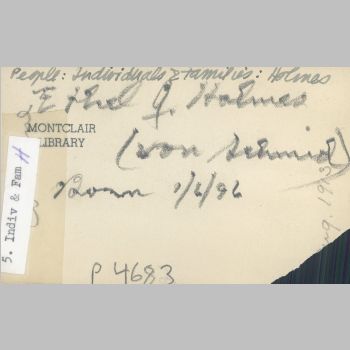 People: Individuals & Families: Holmes
Ethel J. Holmes
MONTCLAIR
LIBRARY
(von Schmid)
Born 1/6/86
P 4683
5. Indiv & Fam H